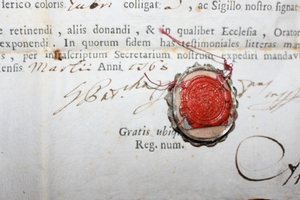 erico coloris rubri colligat , ac Sigillo nostro signat
e retinendi, aliis donandi, & in qualibet Ecclesia, Orator
exponendi. In quorum fidem has testimoniales litteras ma
s, per infrascriptum Secretarium nostrum expediri mandavi
ensis Martii Anni 1768
Gratis ubiq
Reg. num.